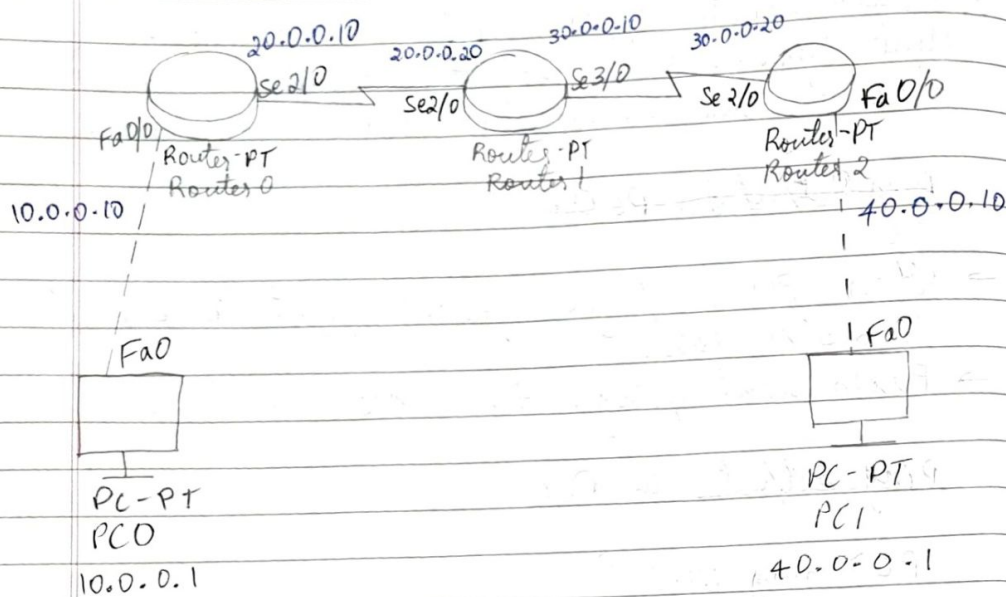 20.0.0.10
20.0.0.20
30.0.0.10
30.0.0.20
Se2/0
Se2/0
Se3/0
Se2/0
Fa0/0
Fa0/0
Router-PT
Router 0
Router-PT
Router 1
Router-PT
Router 2
10.0.0.10
40.0.0.10
Fa0
Fa0
PC-PT
PC0
10.0.0.1
PC-PT
PC1
40.0.0.1